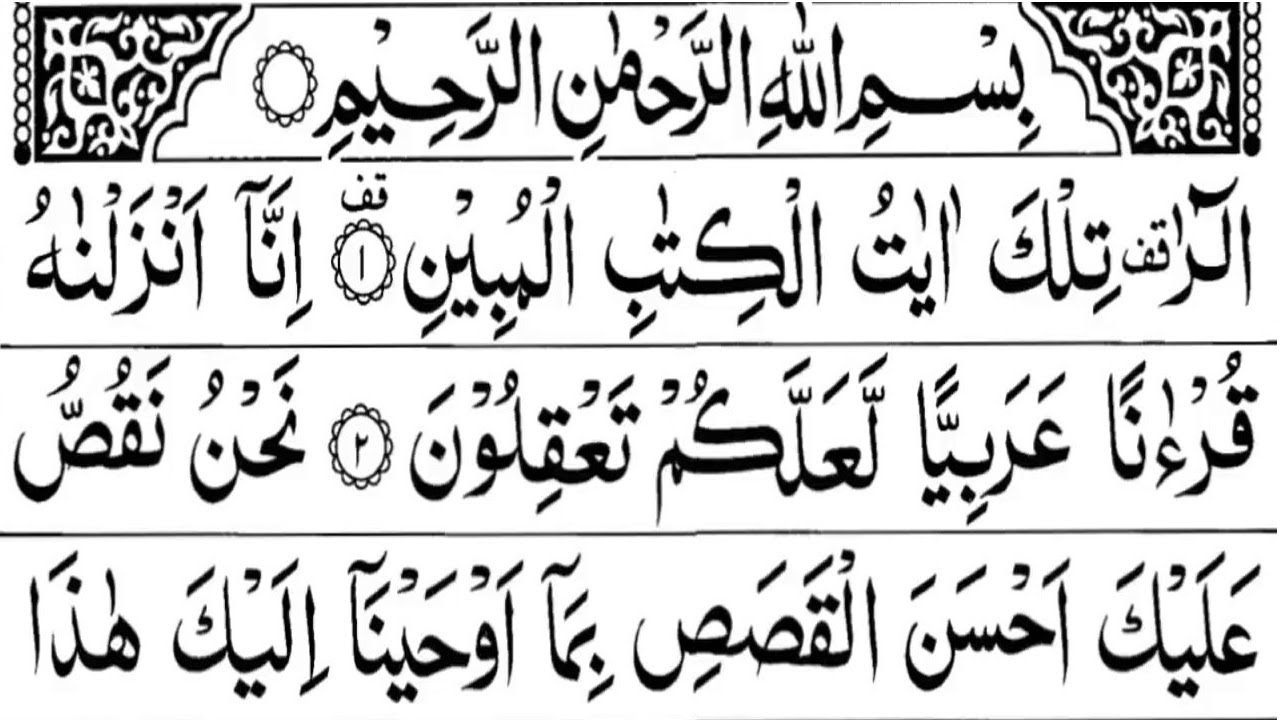 بِسْمِ اللّٰهِ الرَّحْمٰنِ الرَّحِيْمِ ۝
الٓرٰ ࣞقف تِلْكَ اٰيٰتُ الْكِتٰبِ الْمُبِيْنِ ۝١ قف اِنَّاۤ اَنْزَلْنٰهُ
قُرْءٰنًا عَرَبِيًّا لَّعَلَّكُمْ تَعْقِلُوْنَ ۝٢ نَحْنُ نَقُصُّ
عَلَيْكَ اَحْسَنَ الْقَصَصِ بِمَاۤ اَوْحَيْنَاۤ اِلَيْكَ هٰذَا